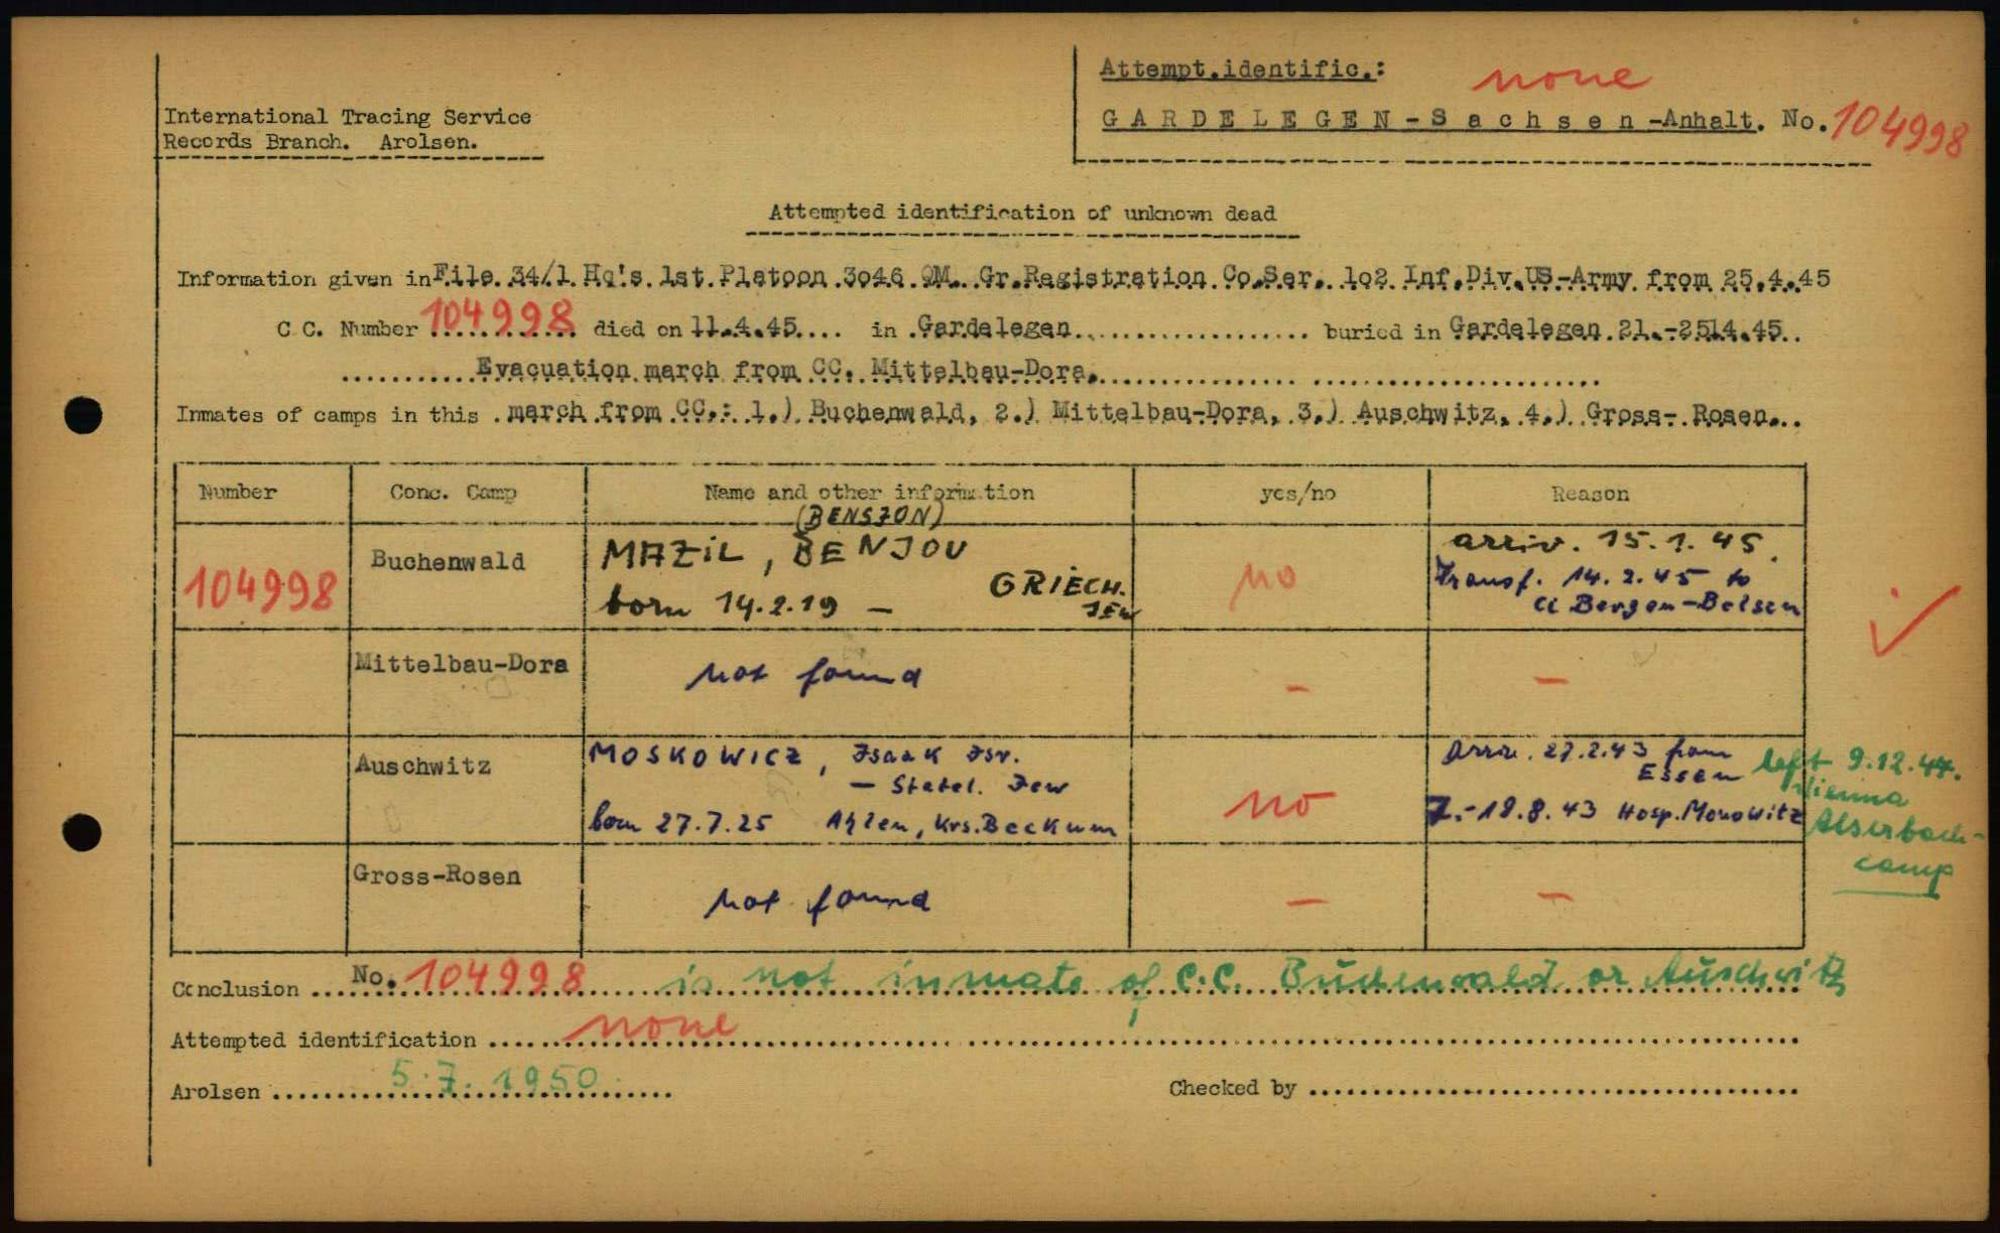 Attempt.identific.: none
International Tracing Service
Records Branch. Arolsen.
GARDELEGEN-Sachsen-Anhalt. No. 104998
Attempted identification of unknown dead
Information given in File 34/1 Hq's 1st Platoon 3o46 QM. Gr.Registration Co.Ser. 1o2 Inf.Div.US-Army from 25.4.45
C C. Number 104998 died on 11.4.45.... in Gardelegen.................... buried in Gardelegen 21.-2514.45..
Evacuation march from CC. Mittelbau-Dora.
Inmates of camps in this march from CC.: 1.) Buchenwald, 2.) Mittelbau-Dora, 3.) Auschwitz, 4.) Gross- Rosen...
Number Conc. Camp Name and other information yes/no Reason
(BENSZON)
104998 Buchenwald MAZiL, BENJOU no arriv. 15.1.45.
GRIECH. Transf. 14.2.45 to
born 14.2.19 — JEW CC Bergen-Belsen
Mittelbau-Dora not found – –
Auschwitz MOSKOWICZ, Isaak Isr. no Arriv. 27.2.43 from
— Statel. Jew Essen
born 27.7.25 Ahlen, Krs.Beckum 7.-18.8.43 Hosp.Monowitz
left 9.12.44.
Vienna
camp
Gross-Rosen not found – –
Conclusion No. 104998 is not inmate of C.C. Buchenwald or Auschwitz
Attempted identification none
Arolsen 5.7.1950 Checked by